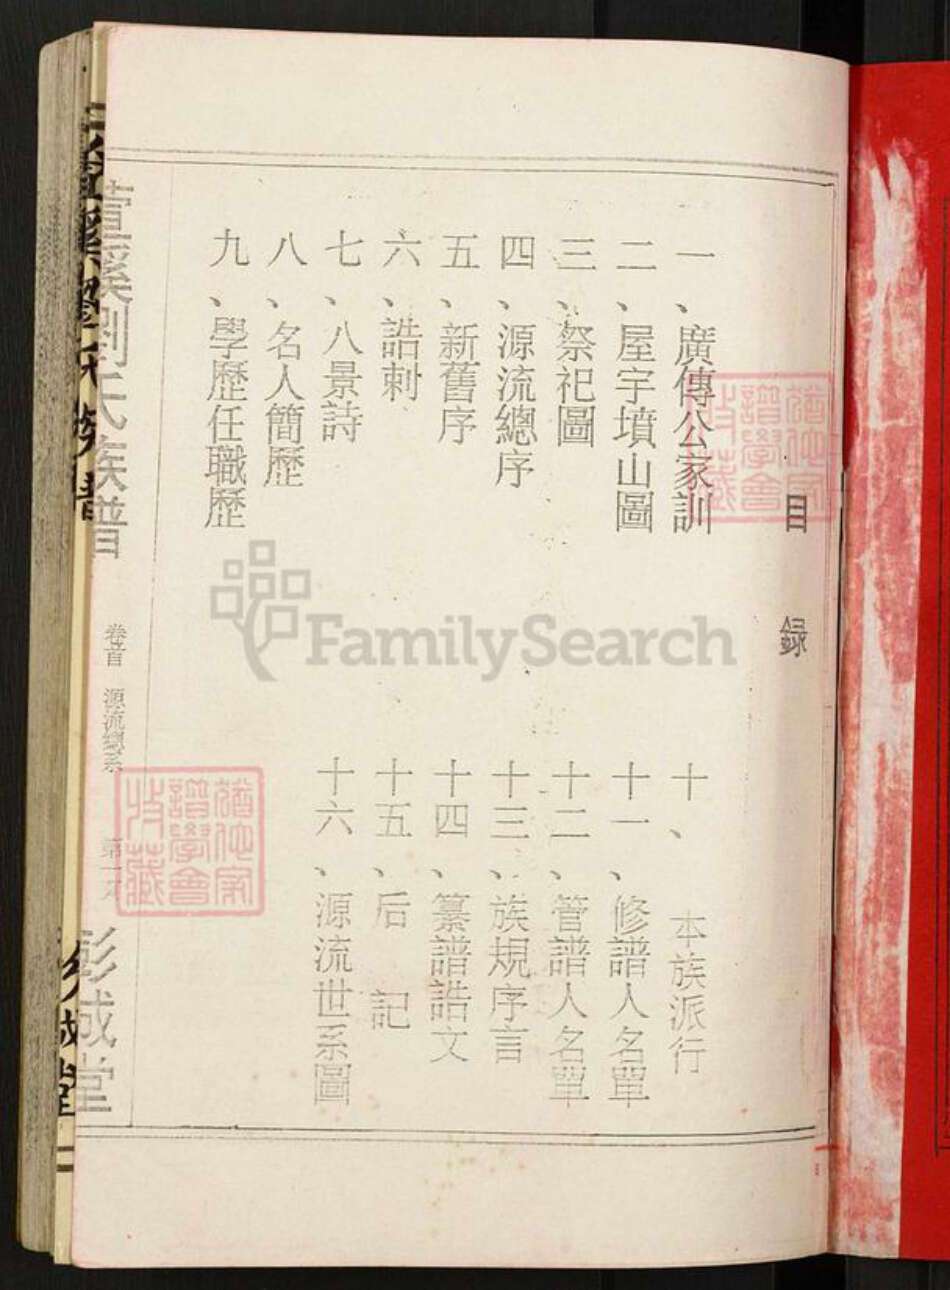 目録
一、廣傳公家訓
二、屋宇墳山圖
三、祭祀圖
四、源流總序
五、新舊序
六、誥刺
七、八景詩
八、名人簡歷
九、學歷任職歷
十、本族派行
十一、修譜人名單
十二、管譜人名單
十三、族規序言
十四、纂譜誥文
十五、后記
十六、源流世系圖
劉氏族譜
卷首 源流總系
彭城堂
FamilySearch
譜學會
收藏
譜學會
收藏